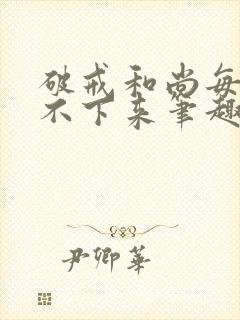 破戒和尚每
不下来笔趣
尹卿华